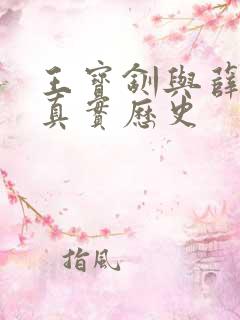 王寶釧與薛
真實歷史
指風